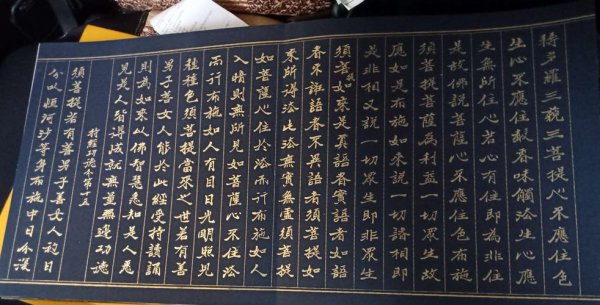 耨多羅三藐三菩提心不應住色
生心不應住聲香味觸法生心應
生無所住心若心有住即為非住
是故佛說菩薩心不應住色布施
須菩提菩薩為利益一切眾生故
應如是布施如來說一切諸相即
是非相又說一切眾生即非眾生
須菩提如來是真語者實語者如語
者不誑語者不異語者須菩提如
來所得法此法無實無虛須菩提
如菩薩心住於法而行布施如人
入暗則無所見如菩薩心不住法
而行布施如人有目日光明照見
種種色須菩提當來之世若有善
男子善女人能於此經受持讀誦
則為如來以佛智慧悉知是人悉
見是人皆得成就無量無邊功德
持經功德分第十五
須菩提若有善男子善女人初日
分以恒河沙等身布施中日分復